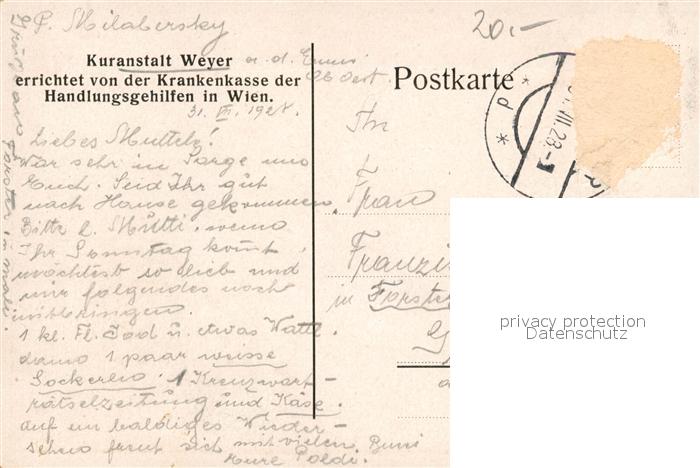 P. Milabersky
20.-
Kuranstalt Weyer a. d. Enns
Ob Oest.
errichtet von der Krankenkasse der
Handlungsgehilfen in Wien.
31. VII. 1928.
Liebes Mutterl!
War sehr in Sorge um
Euch. Seid Ihr gut
nach Hause gekommen.
Bitte l. Mutti, wenn
Ihr Sonntag komt,
möchtest so lieb und
mir folgendes noch
mitbringen.
1 kl. Fl. Jod u. etwas Watte.
dann 1 paar weisse
Sockerln. 1 Kreuzwort-
rätselzeitung und Käse.
auf ein baldiges Wieder-
sehn freut sich mit vielen Bussi
Eure Poldi.
Postkarte
* P *
VII.28-1
An
Frau
Franzis
in Forste
privacy protection
Datenschutz